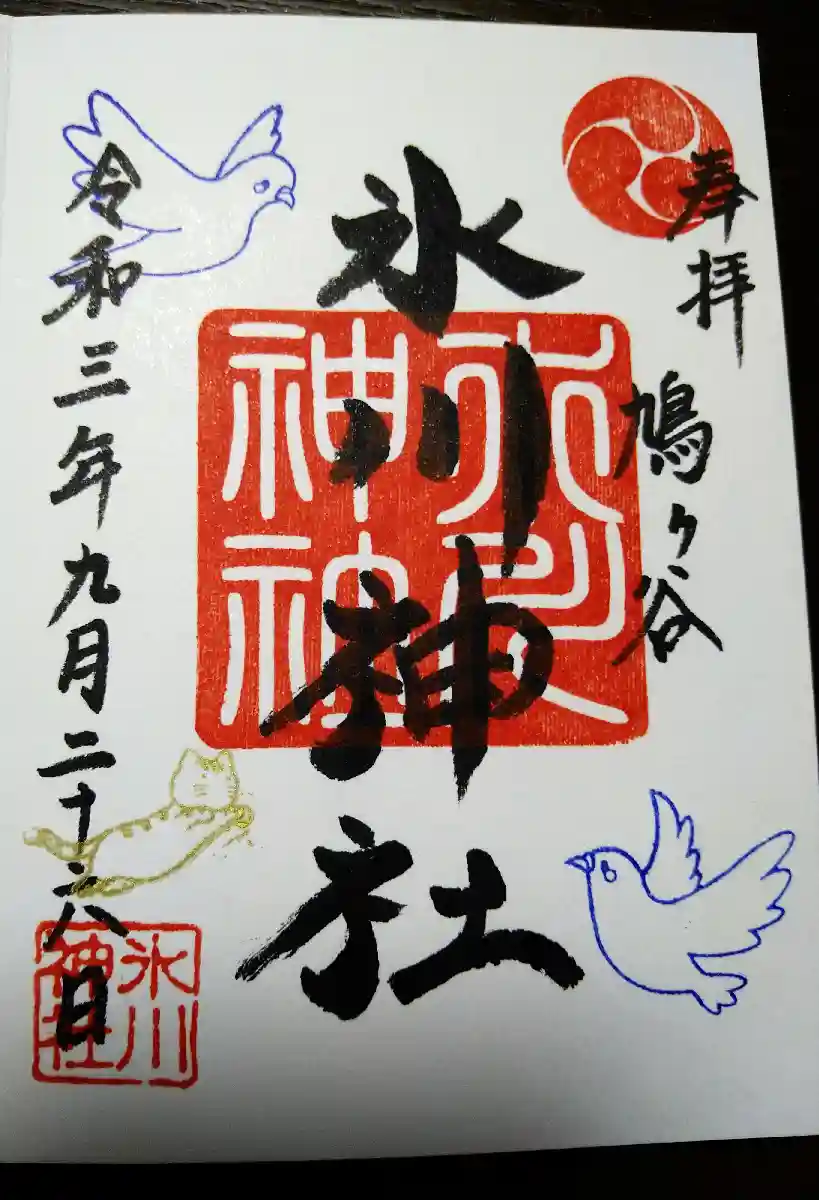 奉拝 鳩ヶ谷
氷川神社
令和三年九月二十六日
氷川
神社